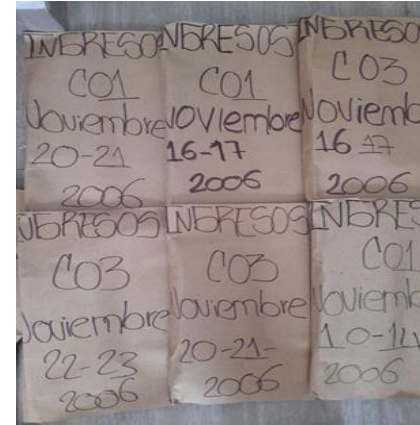 INGRESOS
CO1
Noviembre
20-21
2006
INGRESOS
CO1
NOVIEMbre
16-17
2006
INGRESOS
CO3
Noviemb
16 17
2006
INGRESOS
CO3
Noviembre
22-23
2006
INGRESOS
CO3
Noviembre
20-21-
2006
INGRES
CO1
Noviemb
10-14
2006